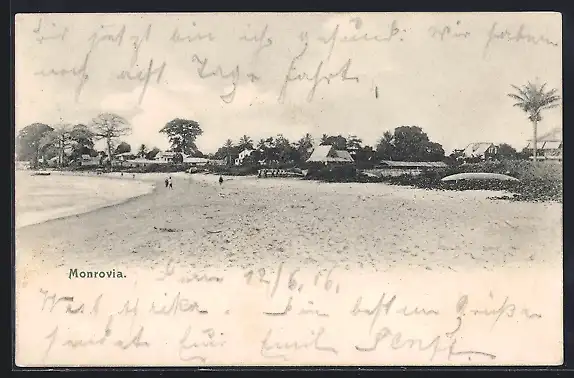 bis jetzt bin ich gesund. Wir haben
noch acht Tage Fahrt.
Monrovia.
den 12/6. 06.
Westafrika. Die besten Grüßen
sendet Euch Emil